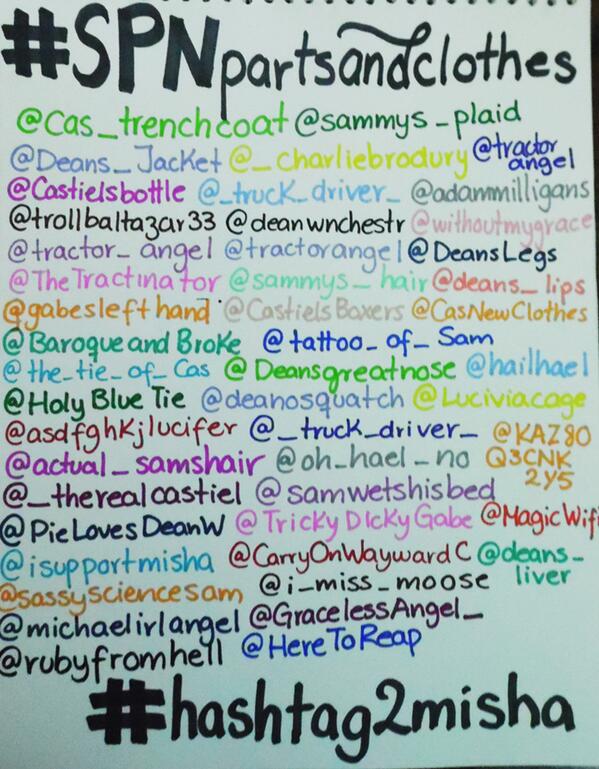 #SPNpartsandclothes
@Cas_trenchcoat @sammys_plaid
@Deans_Jacket @_charliebrodury @tractor angel
@Castielsbottle @_truck_driver_ @adammilligans
@trollbaltazar33 @deanwnchestr @withoutmygrace
@tractor_angel @tractorangel @DeansLegs
@TheTractinator @sammys_hair @deans_lips
@gabeslefthand @CastielsBoxers @CasNewClothes
@BaroqueandBroke @tattoo_of_Sam
@the_tie_of_Cas @Deansgreatnose @hailhael
@Holy Blue Tie @deanosquatch @Luciviacage
@asdfghkjlucifer @_truck_driver_ @KAZ80
@actual_samshair @oh_hael_no Q3CNK
2Y5
@_therealcastiel @samwetshisbed
@PieLovesDeanW @TrickyDickyGabe @MagicWifi
@isupportmisha @CarryOnWaywardC @deans_
liver
@sassysciencesam @i_miss_moose
@michaelirlangel @GracelessAngel_
@rubyfromhell @HereToReap
#hashtag2misha